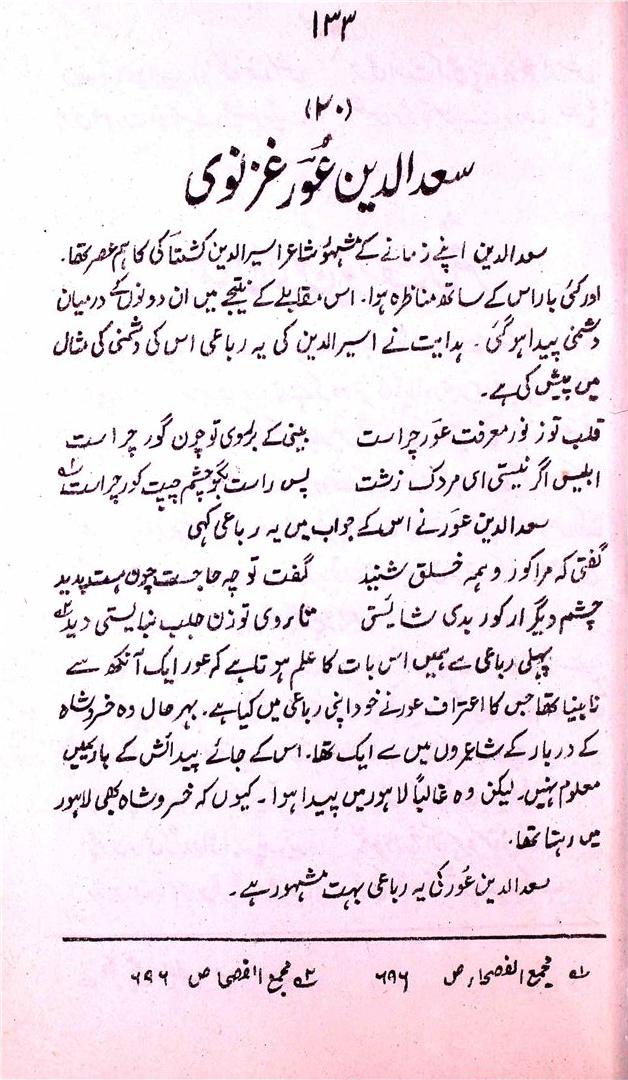 ۱۳۳
(۳۰)
سعد الدین عُوَر غزنوی
سعد الدین اپنے زمانے کے مشہور شاعر اسیر الدین کشتاکی کا ہم عصر تھا۔
اور کئی بار اس کے ساتھ مناظرہ ہوا۔ اس مقابلے کے نتیجے میں ان دونوں کے درمیان
دشمنی پیدا ہو گئی۔ ہدایت نے اسیر الدین کی یہ رباعی اس کی دشمنی کی مثال
میں پیش کی ہے۔
قلب تو ز نور معرفت عور چراست بینی کے بر موی تو چون گور چراست
ابلیس اگر نیستی ای مردک زشت پس راست بگو چشم چپت کور چراست ؎۱
سعد الدین عوَر نے اس کے جواب میں یہ رباعی کہی
گفتی کہ مرا کور و ہمہ خلق شنید گفت تو چہ حاجت چون ہست پدید
چشم دیگر ار کور بدی شایستی تا روی تو زن جلب نبایستی دید ؎۲
پہلی رباعی سے ہمیں اس بات کا علم ہوتا ہے کہ عور ایک آنکھ سے
نابینا تھا جس کا اعتراف عور نے خود اپنی رباعی میں کیا ہے۔ بہر حال وہ خسرو شاہ
کے دربار کے شاعروں میں سے ایک تھا۔ اس کے جائے پیدائش کے بارے میں ہمیں
معلوم نہیں۔ لیکن وہ غالباً لاہور میں پیدا ہوا۔ کیوں کہ خسرو شاہ بھی لاہور
میں رہتا تھا۔
سعد الدین عُور کی یہ رباعی بہت مشہور ہے۔
؎۱ مجمع الفصحاء ص ۶۹۶ ؎۲ مجمع الفصحا ص ۶۹۶